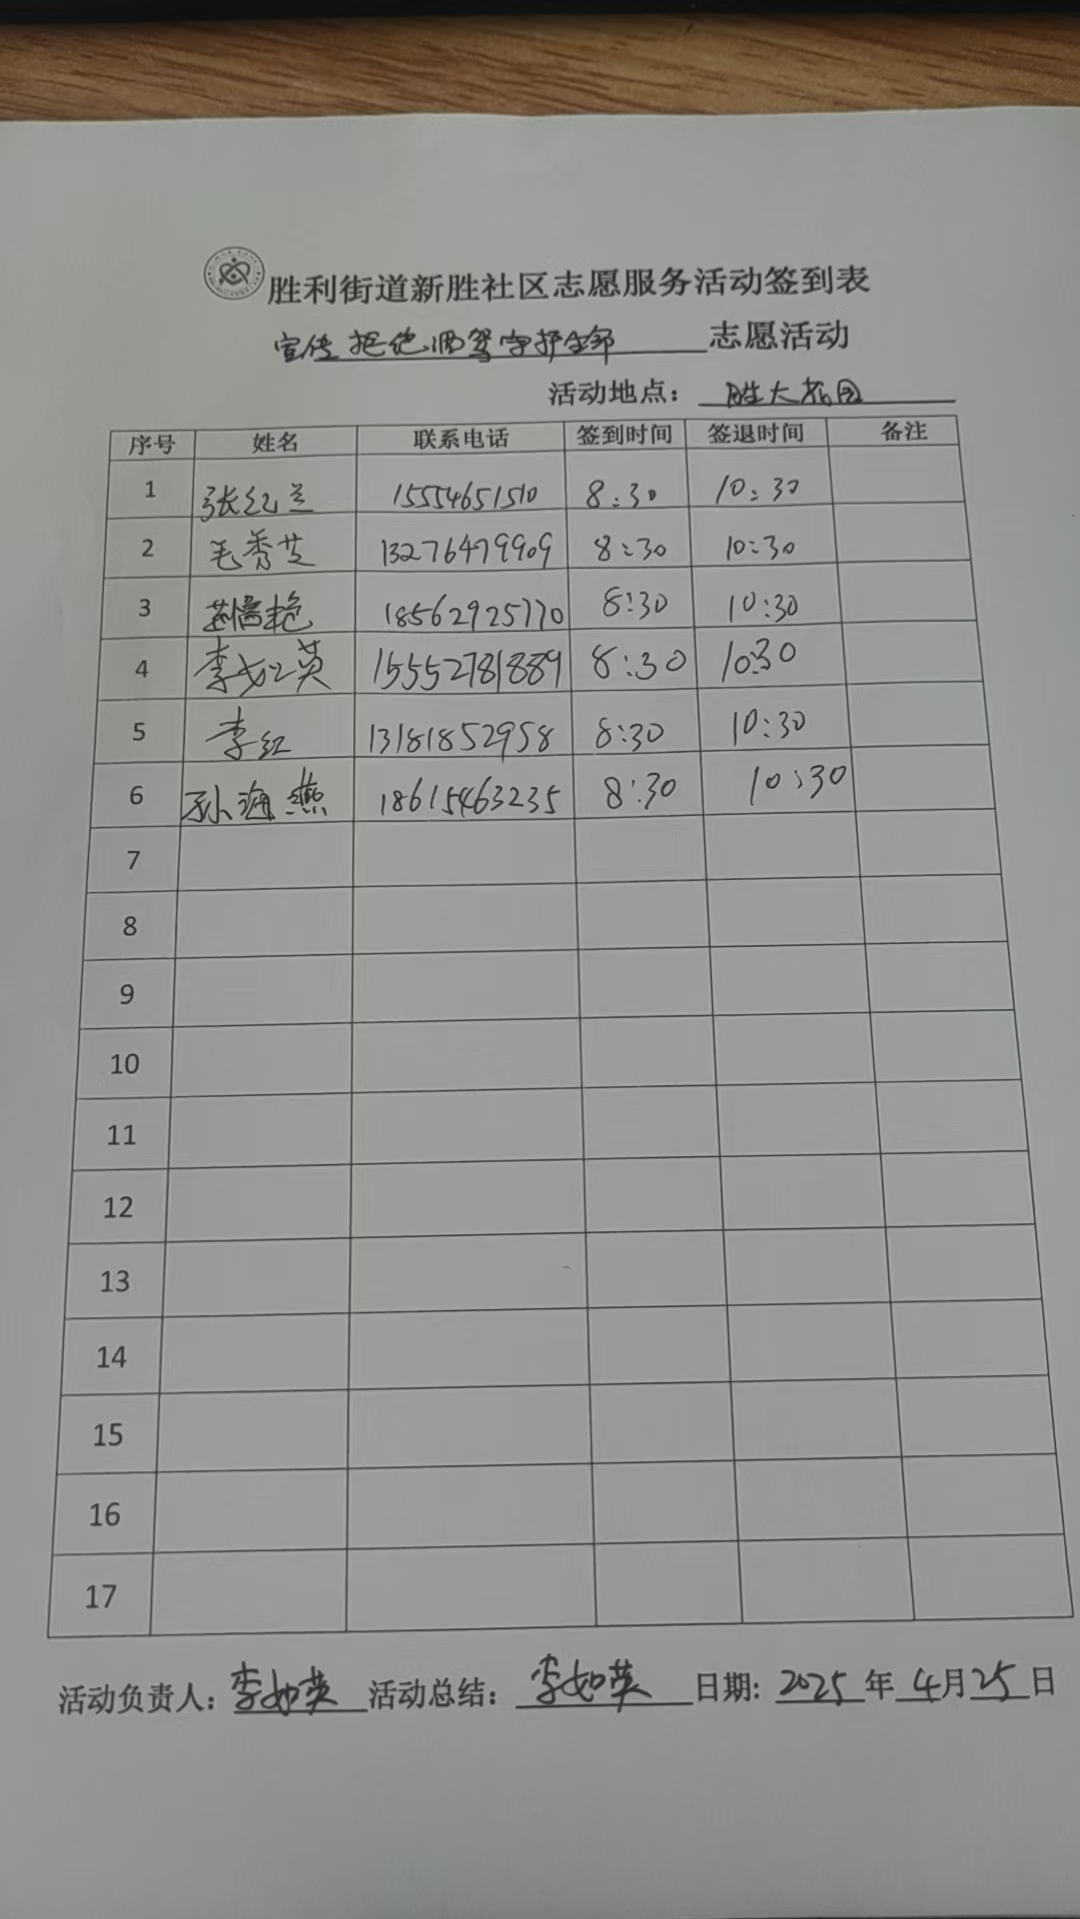 胜利街道新胜社区志愿服务活动签到表
宣传拒绝酒驾守护生命 志愿活动
活动地点: 胜大花园
序号 姓名 联系电话 签到时间 签退时间 备注
1 张红兰 15554651510 8:30 10:30
2 毛秀芝 13276479909 8:30 10:30
3 18562925770 8:30 10:30
4 李如英 15552781889 8:30 10:30
5 李红 13181852958 8:30 10:30
6 孙海燕 18615463235 8:30 10:30
7
8
9
10
11
12
13
14
15
16
17
活动负责人: 李如英 活动总结: 李如英 日期: 2025年4月25日